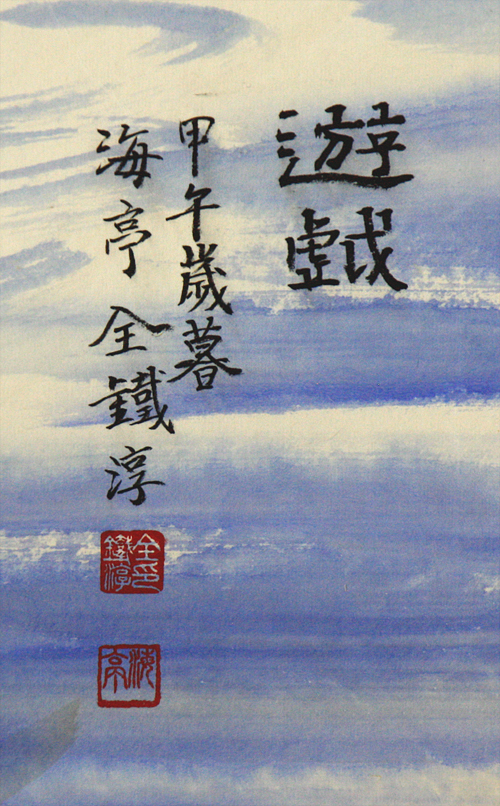 遊戱
甲午歲暮
海亭 全鐵淳
全鐵淳印
海亭